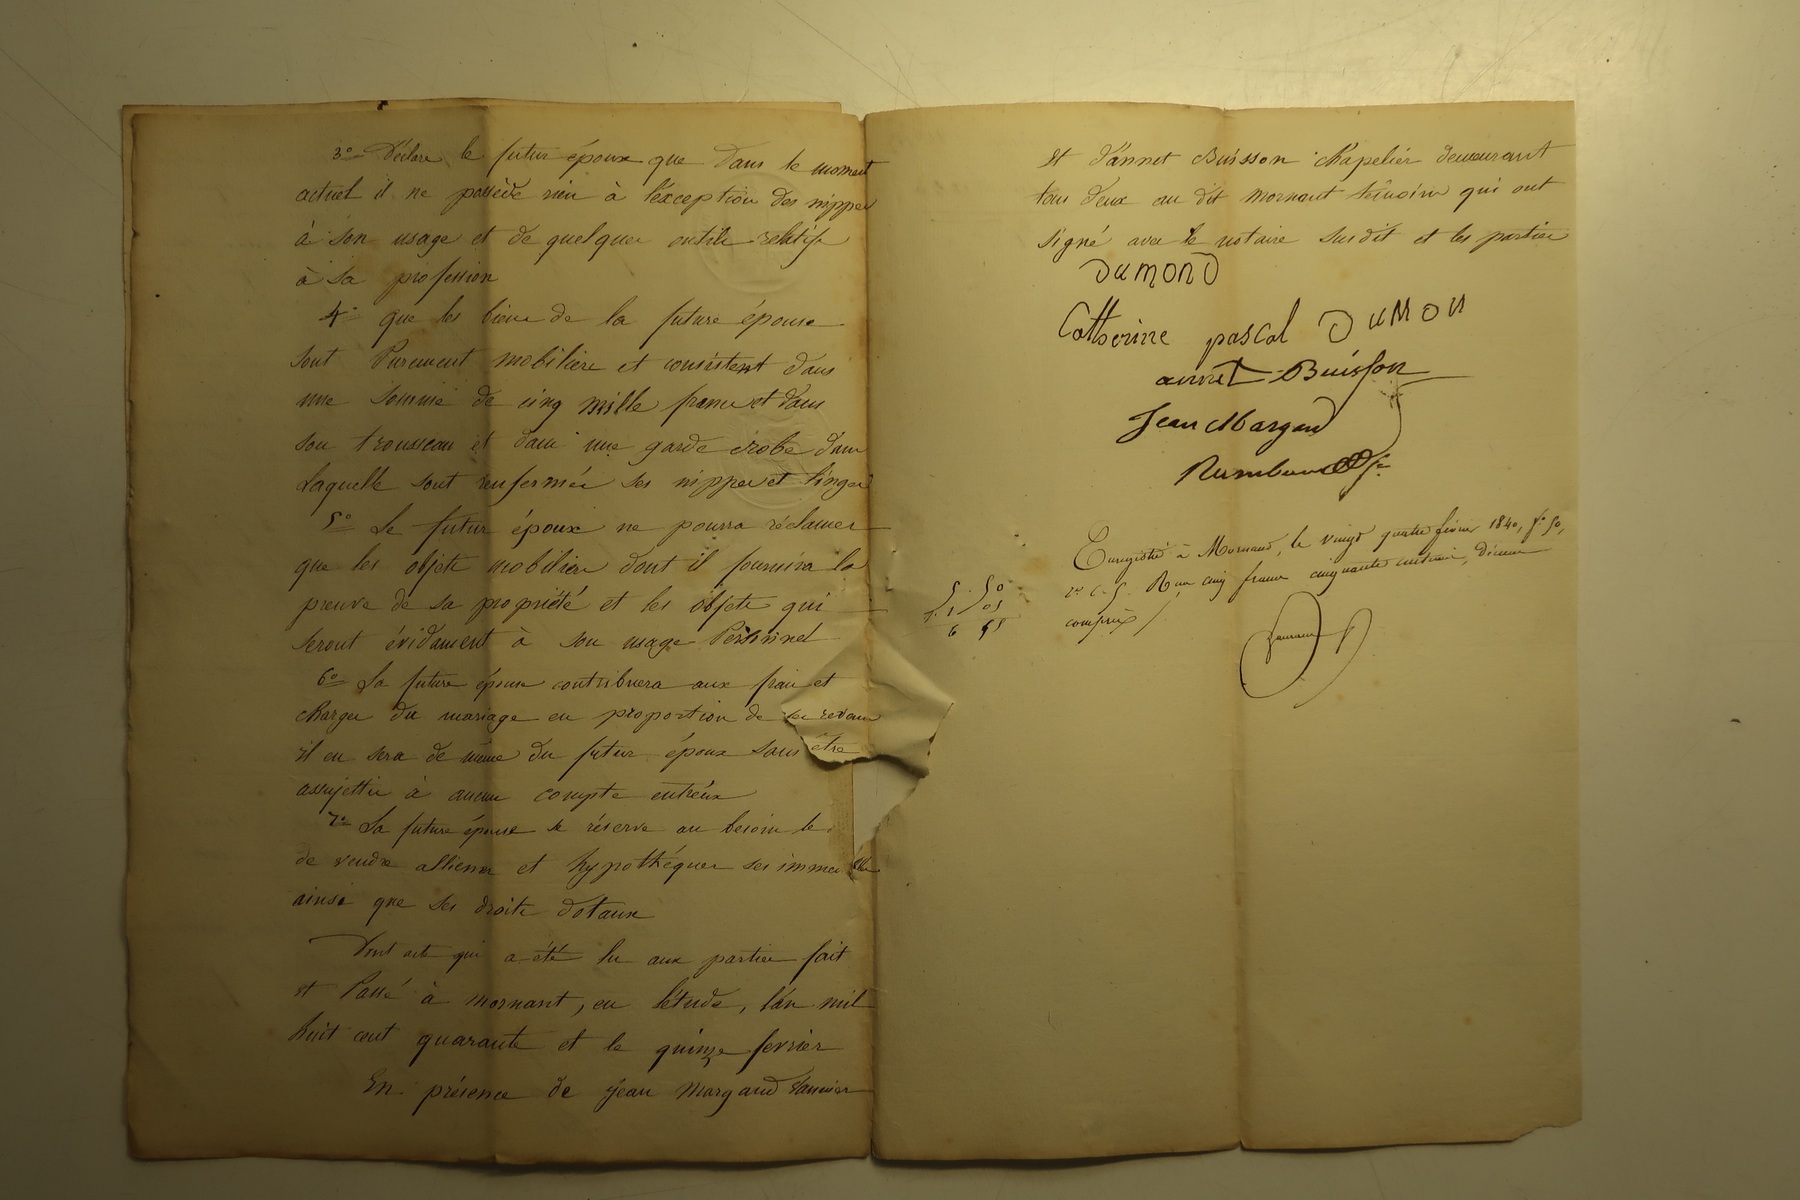 3° Déclare le futur époux que dans le moment
actuel il ne possède rien à l'éxception des nippes
à son usage et de quelques outils relatifs
à sa profession
4° que les biens de la future épouse
sont Purement mobiliers et consistent dans
une somme de cinq mille francs et dans
son trousseau et dans une garde robe dans
laquelle sont renfermés ses nippes et linges
5° Le futur époux ne pourra réclamer
que les objets mobiliers dont il fournira la
preuve de sa propriété et les objets qui
seront évidament à son usage Personnel
6° La future épouse contribuera aux frais et
charges du mariage en proportion de ses revenus
il en sera de même du futur époux sans être
assujettis à aucun compte entr'eux
7° La future épouse se réserve au besoin le
de vendre alliener et hypothéquer ses immeubles
ainsi que ses droits dotaux
Dont acte qui a été lu aux parties fait
et Passé à mornant, en l'étude, l'an mil
huit cent quarante et le quinze fevrier
En présence de jean Margand
et d'annet Buisson chapelier demeurant
tous deux au dit mornant témoins qui ont
signé avec le notaire susdit et les parties
DUMOND
Catherine pascal DUMON
annet Buisson
Jean Margand
Enregistré à Mornand, le vingt quatre février 1840, f° 50,
v° c. 5. R un cinq francs cinquante centimes, décime
compris
5. 50
1. 05
6 55